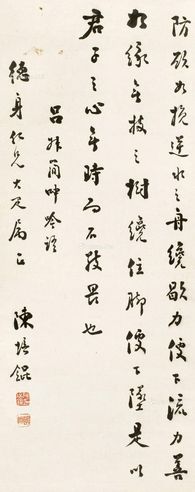 防欲如挽逆水之舟纔歇力便下流力善
如緣無枝之樹纔住脚便下墜是以
君子之心無時而不敬畏也
呂叔簡呻吟語
德身仁兄大人屬正
陳培錕